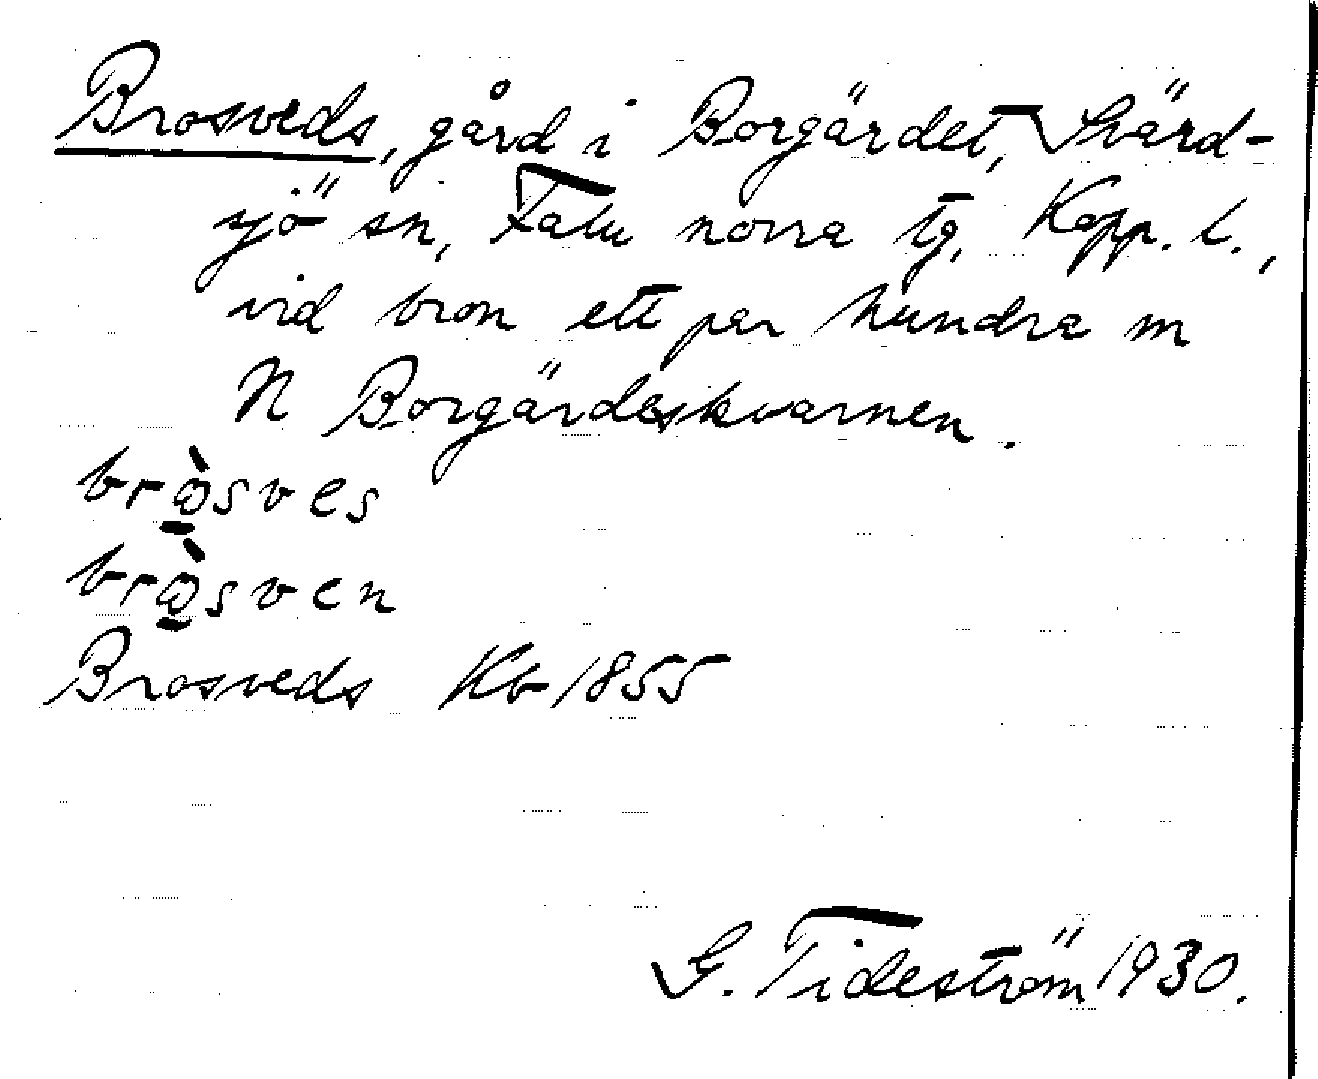 Brosveds, gård i Borgärdet, Svärd-
sjö sn, Falu norra tg, Kopp. l.,
vid bron ett par hundra m
N Borgärdeskvarnen.
brò̱sves
brò̱sven
Brosveds Kb 1855
G. Tideström 1930.